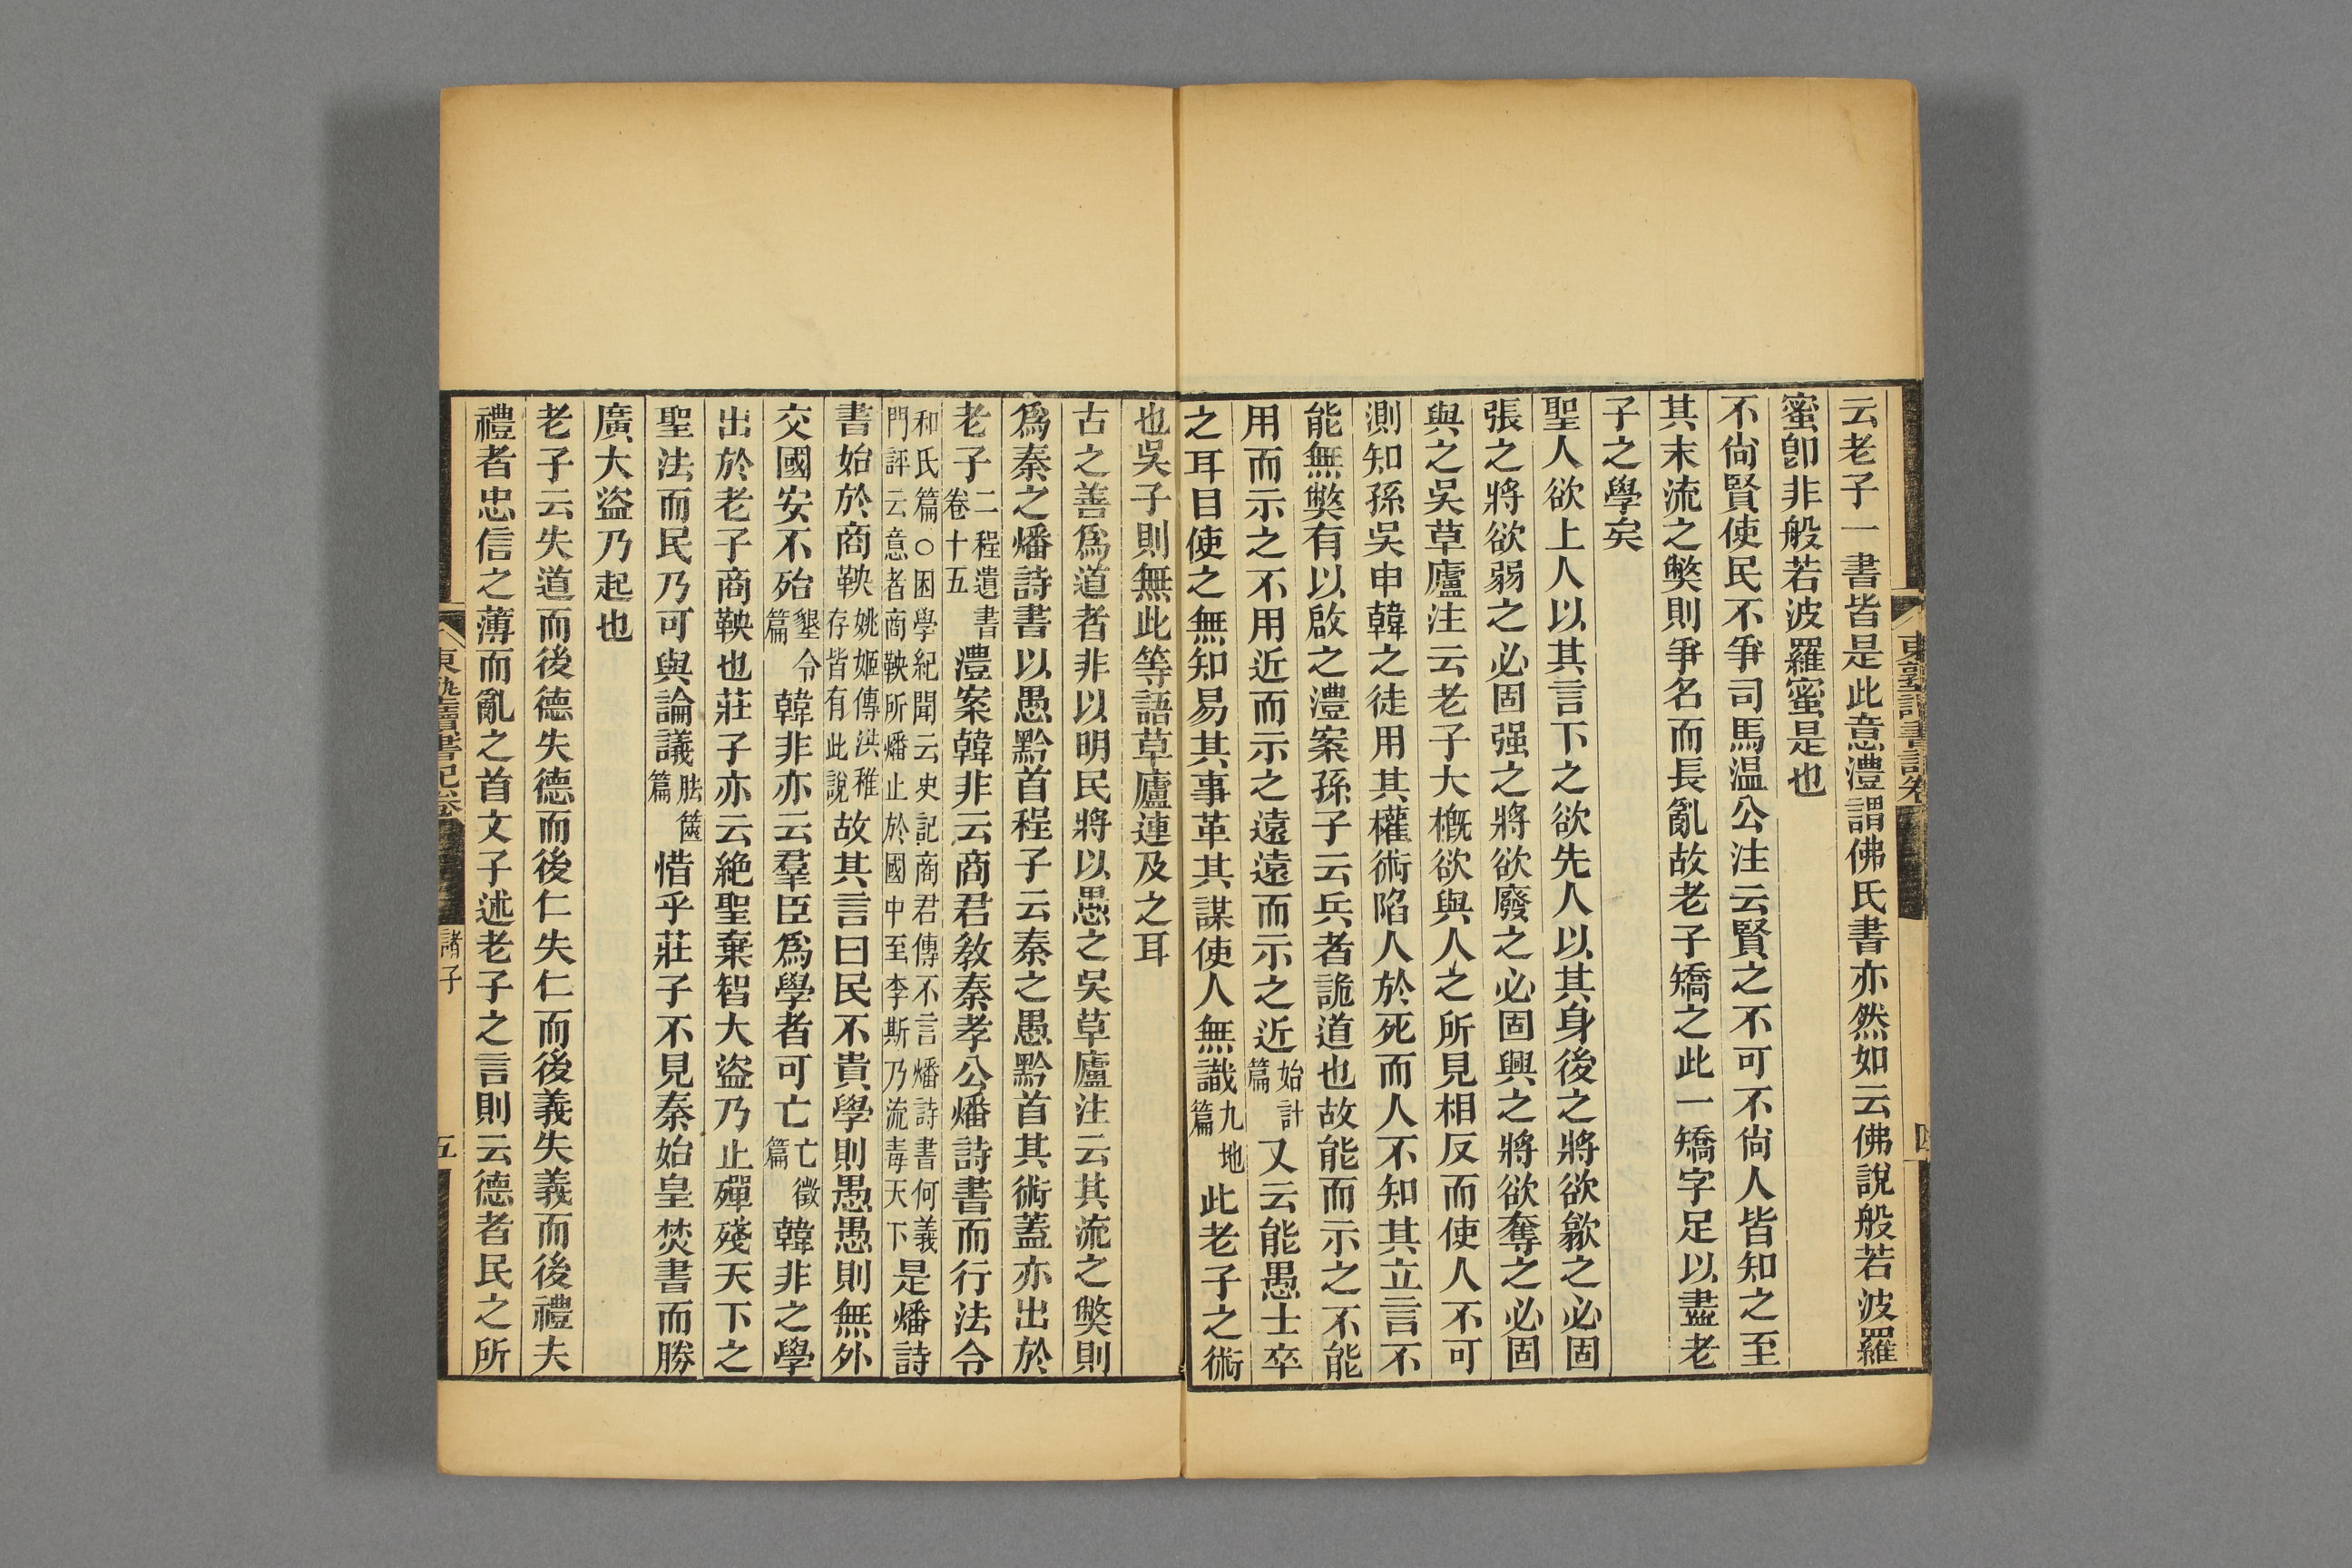 云老子一書皆是此意澧謂佛氏書亦然如云佛說般若波羅
蜜卽非般若波羅蜜是也
不尙賢使民不爭司馬温公注云賢之不可不尙人皆知之至
其末流之獘則爭名而長亂故老子矯之此一矯字足以盡老
子之學矣
聖人欲上人以其言下之欲先人以其身後之將欲歙之必固
張之將欲弱之必固强之將欲廢之必固興之將欲奪之必固
與之吳草廬注云老子大槪欲與人之所見相反而使人不可
測知孫吳申韓之徒用其權術陷人於死而人不知其立言不
能無獘有以啟之澧案孫子云兵者詭道也故能而示之不能
用而示之不用近而示之遠遠而示之近始計篇又云能愚士卒
之耳目使之無知易其事革其謀使人無識九地篇此老子之術
也吳子則無此等語草廬連及之耳
古之善爲道者非以明民將以愚之吳草廬注云其流之獘則
爲秦之燔詩書以愚黔首程子云秦之愚黔首其術蓋亦出於
老子二程遺書卷十五澧案韓非云商君敎秦孝公燔詩書而行法令
和氏篇○困學紀聞云史記商君傳不言燔詩書何義
門評云意者商鞅所燔止於國中至李斯乃流毒天下是燔詩
書始於商鞅姚姬傳洪稚存皆有此說故其言曰民不貴學則愚愚則無外
交國安不殆墾令篇韓非亦云羣臣爲學者可亡亡徵篇韓非之學
出於老子商鞅也莊子亦云絶聖棄智大盜乃止殫殘天下之
聖法而民乃可與論議胠篋篇惜乎莊子不見秦始皇焚書而勝
廣大盜乃起也
老子云失道而後德失德而後仁失仁而後義失義而後禮夫
禮者忠信之薄而亂之首文子述老子之言則云德者民之所
東塾讀書記卷
諸子
五